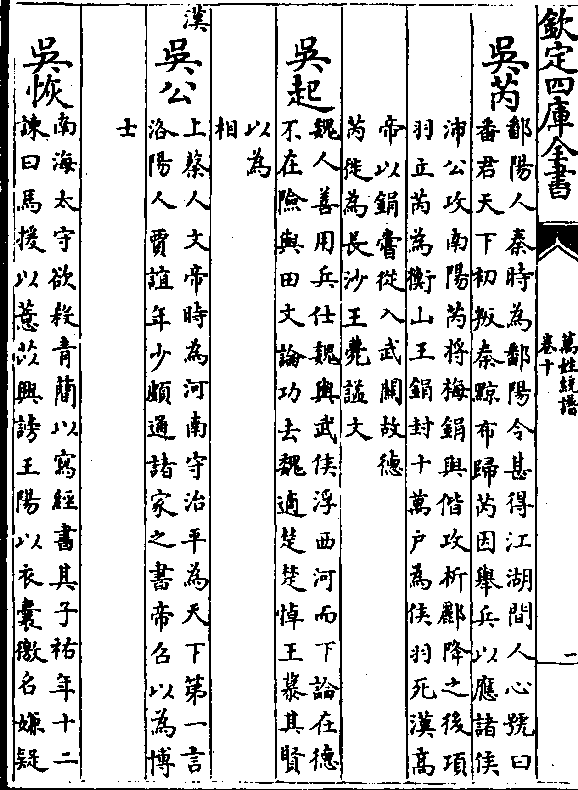 欽定四庫全書
萬姓統譜
卷十
二
吳芮
鄱陽人秦時為鄱陽令甚得江湖間人心號曰
番君天下初叛秦黥布歸芮因舉兵以應諸侯
沛公攻南陽芮將梅鋗與偕攻析酈降之後項
羽立芮為衡山王鋗封十萬户為侯羽死漢高
帝以鋗嘗從入武關故德
芮徙為長沙王薨謚文
吳起
魏人善用兵仕魏與武侯浮西河而下論在德
不在險與田文論功去魏適楚楚悼王慕其賢
以為
相
漢
吳公
上蔡人文帝時為河南守治平為天下第一言
洛陽人賈誼年少頗通諸家之書帝召以為博
士
吳恢
南海太守欲殺青簡以寫經書其子祐年十二
諫曰馬援以薏苡興謗王陽以衣囊徼名嫌疑